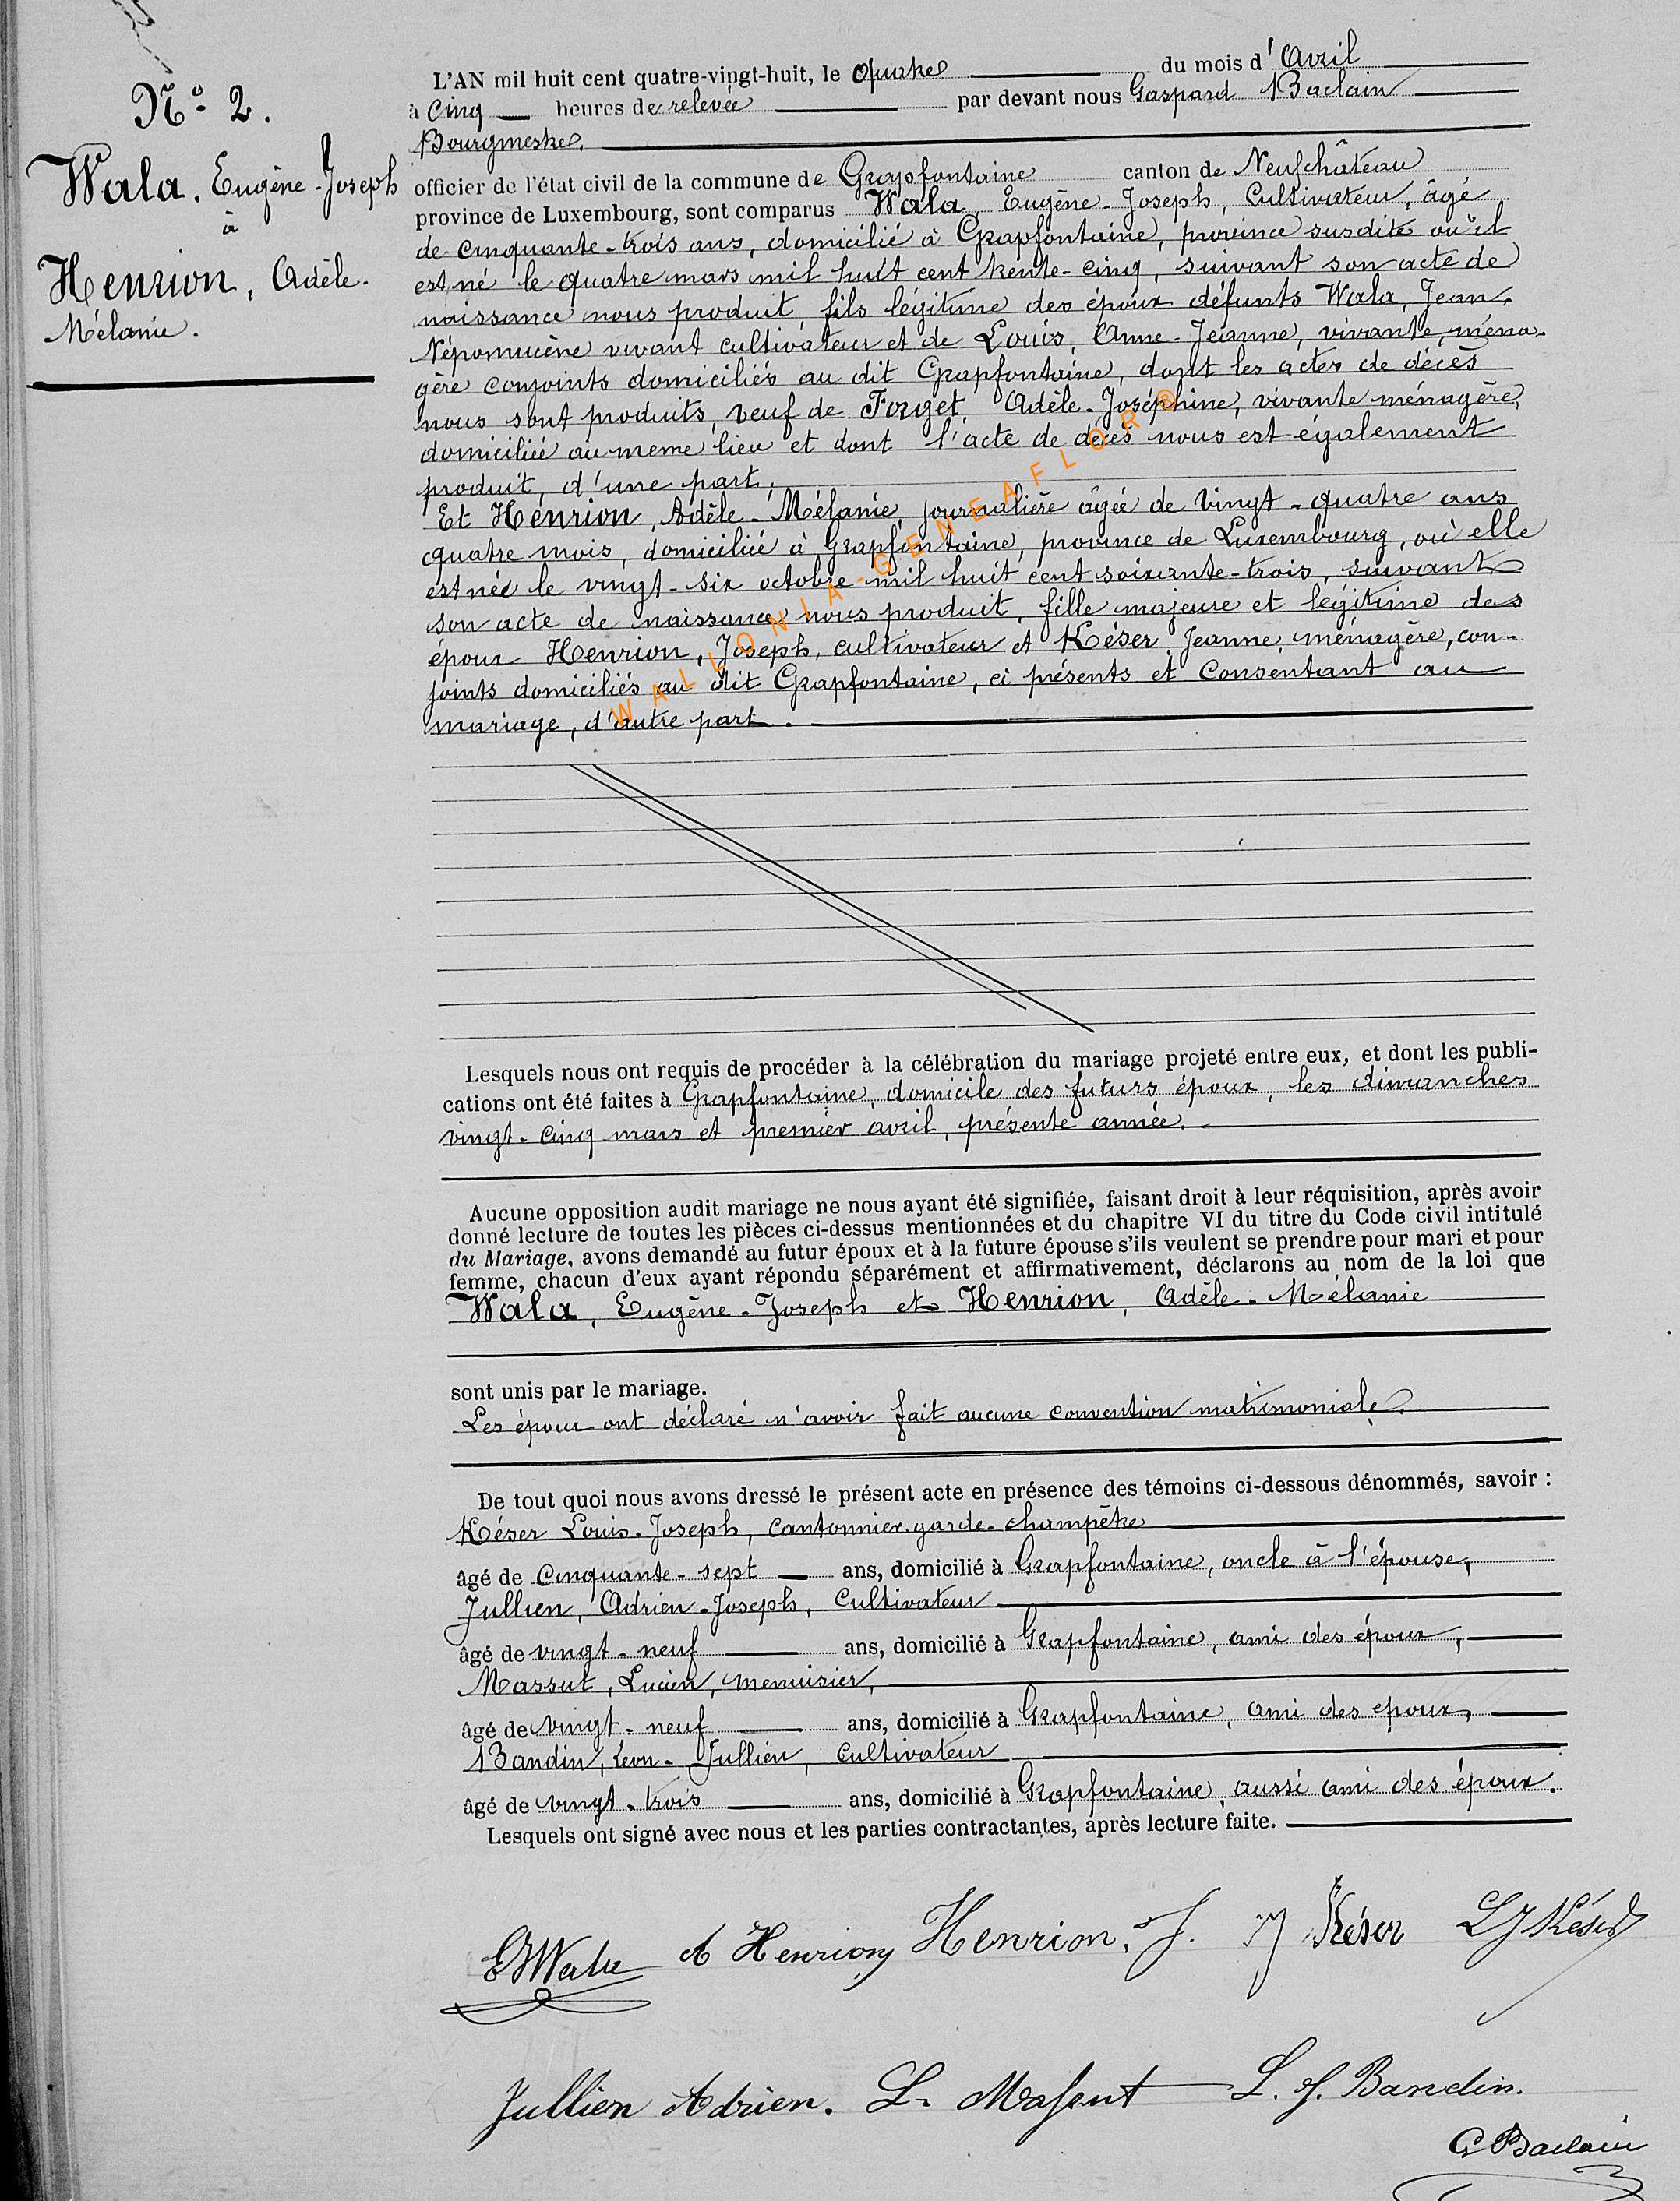 N° 2.
Wala, Eugène-Joseph
à
Henrion, Adèle-
Mélanie.
L'AN mil huit cent quatre-vingt-huit, le quatre du mois d'Avril
à cinq heures de relevée par devant nous Gaspard Baclain
Bourgmestre.
officier de l'état civil de la commune de Grapfontaine canton de Neufchâteau
province de Luxembourg, sont comparus Wala, Eugène-Joseph, Cultivateur, âgé
de cinquante-trois ans, domicilié à Grapfontaine, province susdite où il
est né le quatre mars mil huit cent trente-cinq, suivant son acte de
naissance nous produit, fils légitime des époux défunts Wala, Jean-
Népomucène vivant cultivateur et de Louis, Anne-Jeanne, vivante, ména-
gère conjoints domiciliés au dit Grapfontaine, dont les actes de décès
nous sont produits, veuf de Forget, Adèle-Joséphine, vivante ménagère,
domiciliée au meme lieu et dont l'acte de décès nous est également
produit, d'une part,
Et Henrion, Adèle-Mélanie, journalière âgée de vingt-quatre ans
quatre mois, domiciliée à Grapfontaine, province de Luxembourg, où elle
est née le vingt-six octobre mil huit cent soixante-trois, suivant
son acte de naissance nous produit, fille majeure et légitime des
époux Henrion, Joseph, cultivateur et Késer Jeanne, ménagère, con-
joints domiciliés au dit Grapfontaine, ci présents et Consentant au
mariage, d'autre part.
WALLONIA-GENEAFLOR®
Lesquels nous ont requis de procéder à la célébration du mariage projeté entre eux, et dont les publi-
cations ont été faites à Grapfontaine, domicile des futurs époux, les dimanches
vingt-cinq mars et premier avril, présente année.
Aucune opposition audit mariage ne nous ayant été signifiée, faisant droit à leur réquisition, après avoir
donné lecture de toutes les pièces ci-dessus mentionnées et du chapitre VI du titre du Code civil intitulé
du Mariage, avons demandé au futur époux et à la future épouse s'ils veulent se prendre pour mari et pour
femme, chacun d'eux ayant répondu séparément et affirmativement, déclarons au nom de la loi que
Wala, Eugène-Joseph et Henrion, Adèle-Mélanie
sont unis par le mariage.
Les époux ont déclaré n'avoir fait aucune convention matrimoniale.
De tout quoi nous avons dressé le présent acte en présence des témoins ci-dessous dénommés, savoir :
Késer Louis-Joseph, Cantonnier garde-champêtre
âgé de cinquante-sept ans, domicilié à Grapfontaine, oncle à l'épouse,
Jullien, Adrien-Joseph, Cultivateur
âgé de vingt-neuf ans, domicilié à Grapfontaine, ami des époux,
Massut, Lucien, menuisier,
âgé de vingt-neuf ans, domicilié à Grapfontaine, ami des epoux,
Bandin, Léon-Jullien, cultivateur
âgé de vingt-trois ans, domicilié à Grapfontaine, aussi ami des époux.
Lesquels ont signé avec nous et les parties contractantes, après lecture faite.
EJWala A Henrion Henrion. J. J Késer LJ Késer
Jullien Adrien. L. Massut L. J. Bandin.
G Baclain